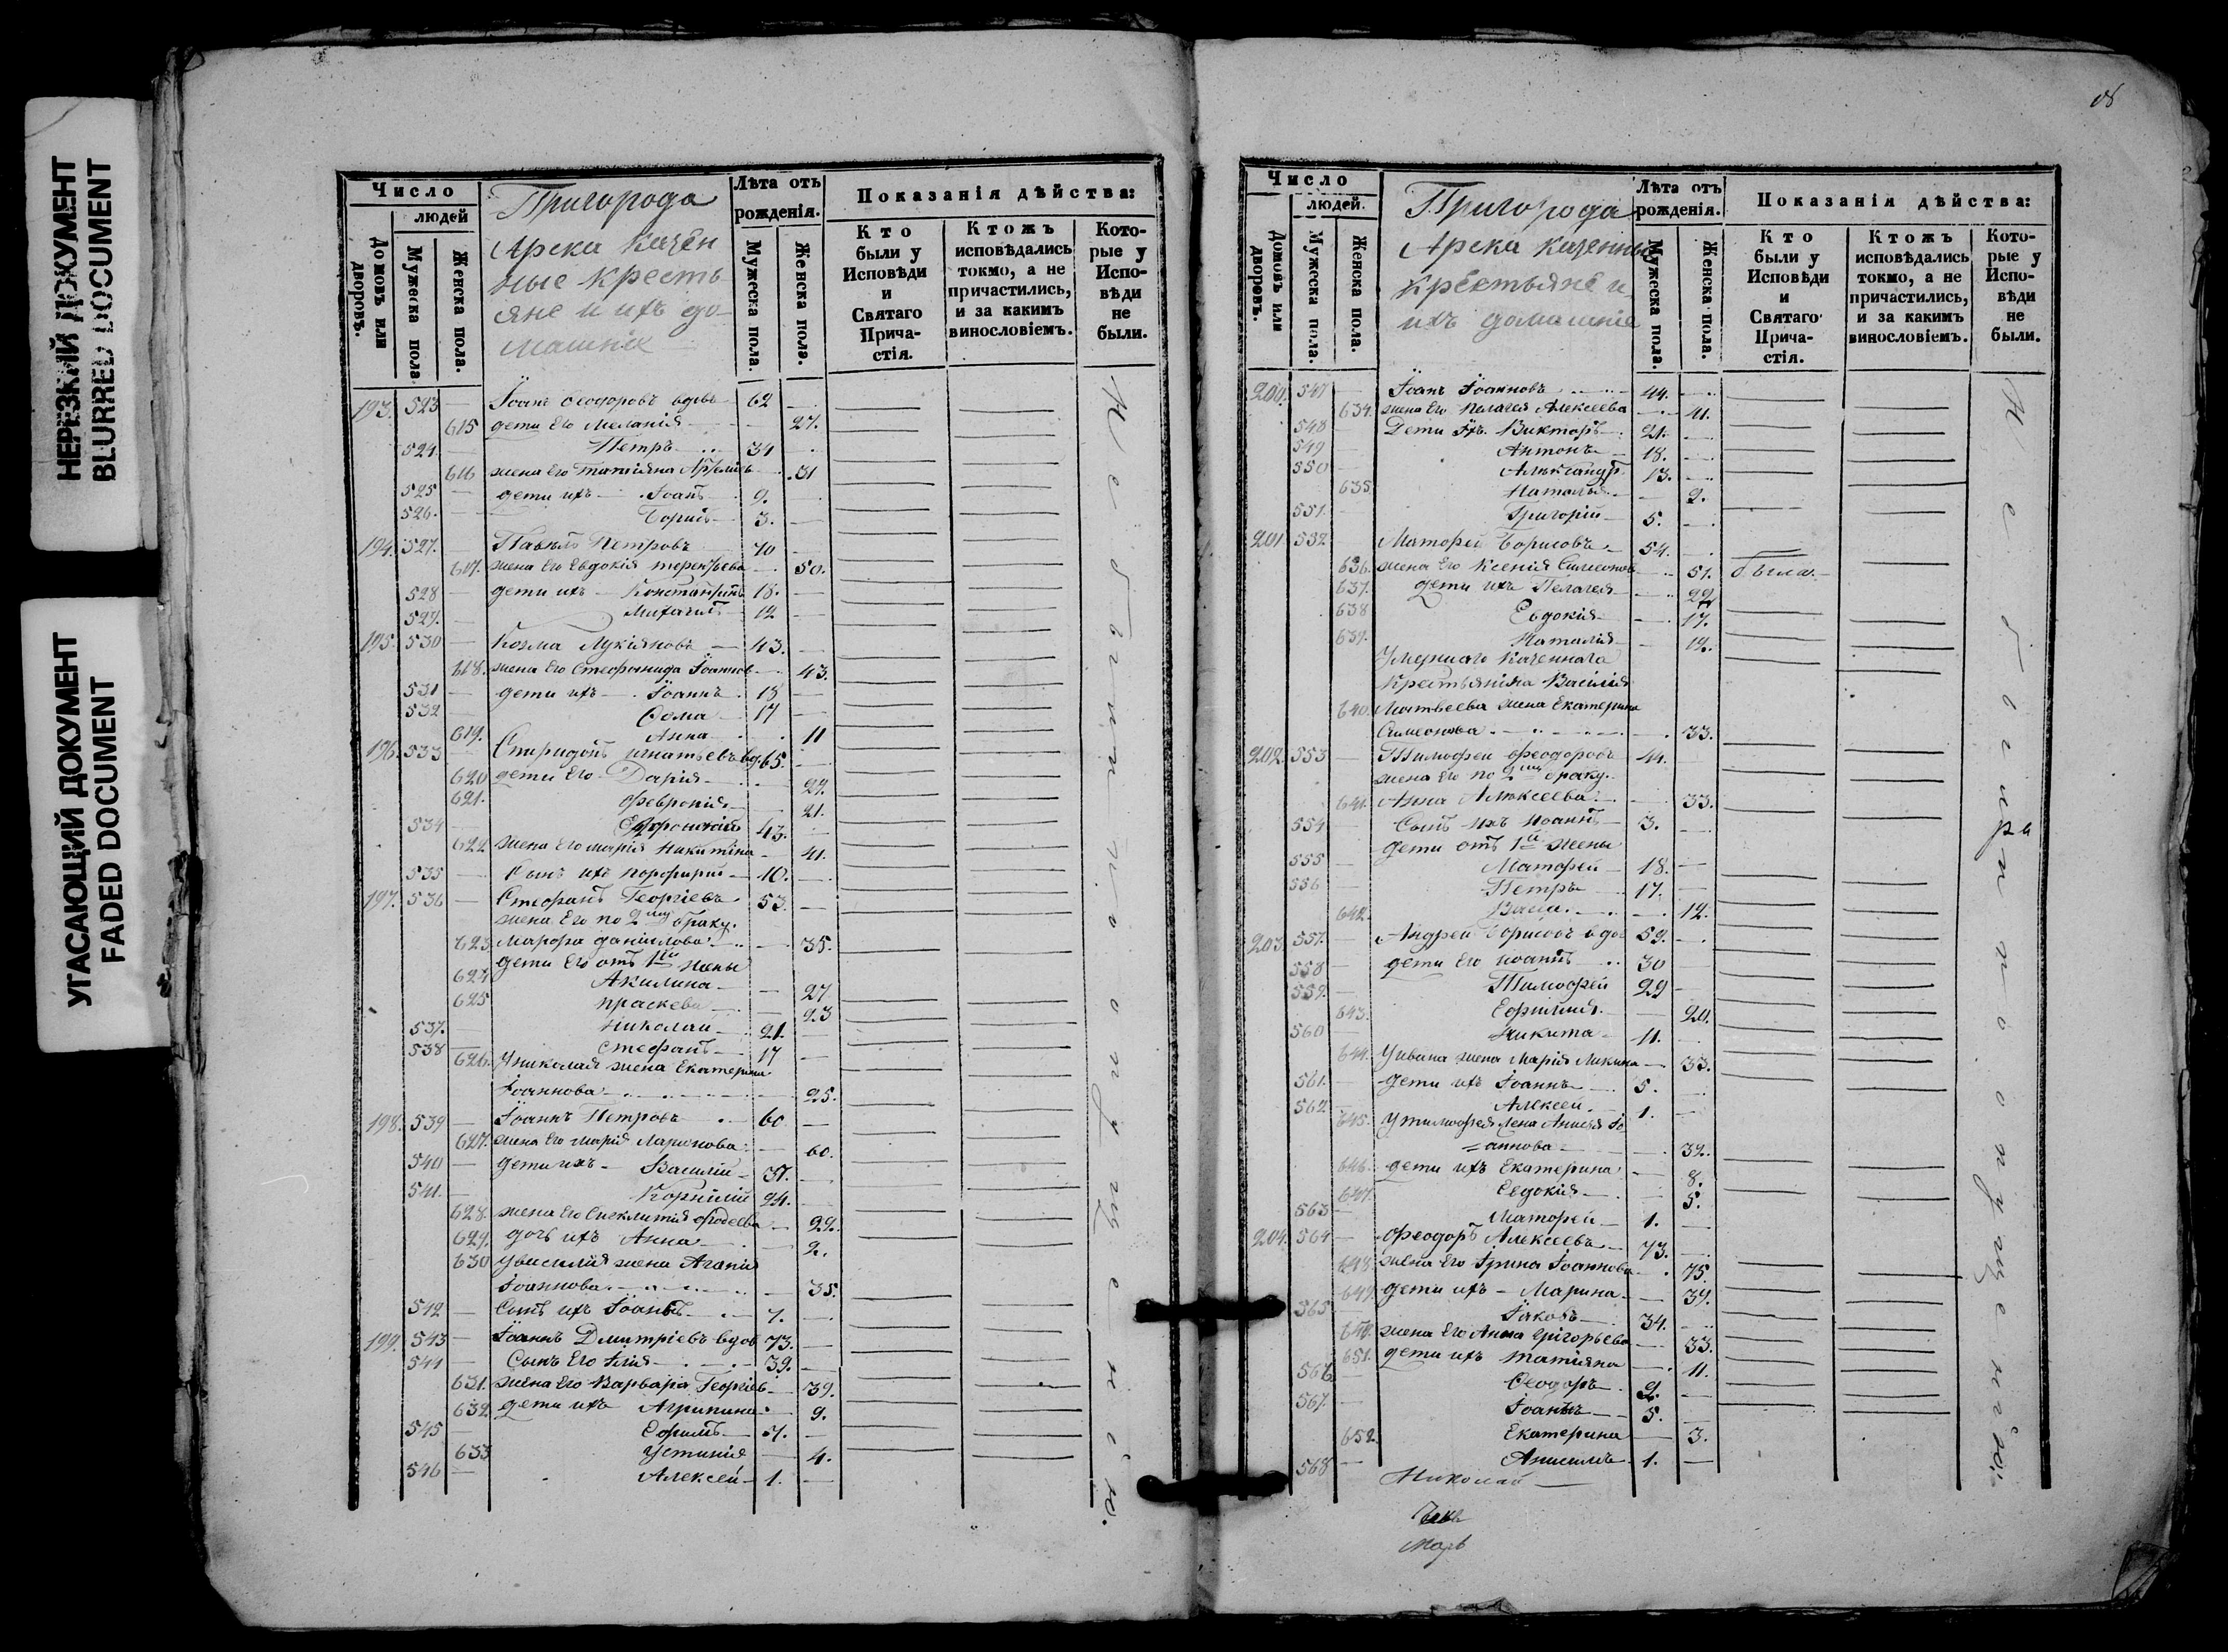 НЕРЕЗКИЙ ДОКУМЕНТ
BLURRED DOCUMENT
УГАСАЮЩИЙ ДОКУМЕНТ
FADED DOCUMENT
Число
людей
Домовъ или дворовъ.
Мужеска пола
Женска пола.
Пригорода
Арска казен
ные кресть
яне и ихъ до-
машніе
Лѣта отъ рожденія.
Мужеска пола.
Женска пола.
Показанія дѣйства:
Кто были у Исповѣди и Святаго Прича-стія.
Ктожъ исповѣдались токмо, а не причастились, и за какимъ винословіемъ.
Кото-рые у Испо-вѣди не были.
193. 523 — Іоанъ Ѳеодоровъ вдовъ 62 —
615 дети Его Меланія — 27.
524. — Петръ 34
616 жена Его Татіяна 31
525 — дети ихъ Іоанъ 9.
526. — Борисъ 3. —
194. 527. Павелъ Петровъ 70 —
617. жена Его Евдокія Терентьева 50.
528 — дети ихъ Константинъ 18. —
529. — Михаилъ 12 —
195. 530 — Козма Лукіяновъ — 43. —
618. жена Его Стефанида Іоаннов 43.
531 — дети ихъ Іоаннъ 18 —
532 — Ѳома 17 —
619. Анна 11
196. 533 Спиридонъ Игнатьевъ вд. 65. —
620 дети Его Дарія 27.
621. Февронія 21.
534 43. —
622 жена Его Марія Никитина 41.
535 — Сынъ ихъ Порфирій — 10. —
197. 536 — Стефанъ Георгіевъ 53. —
жена Его по 2му браку.
623 Марфа Даніилова — 35.
дети Его отъ 1й жены
624 Акилина — 27
625 Праскева — 23
537. — Николай 21. —
538 — Стефанъ 17 —
626. У Николая жена Екатерина
Іоаннова 25.
198. 539 — Іоаннъ Петровъ 60 —
627. жена Его Марія Ларионова 60.
540 — дети ихъ — Василій — 37. —
541. — Корнилій 24. —
628. жена Его Синклитія — 22.
629. дочь ихъ Анна 2.
630 У Василія жена Агапія
Іоаннова 35.
542 — Сынъ ихъ Іоаннъ 7. —
199. 543 — Іоаннъ Дмитріевъ вдов 73. —
544 — Сынъ Его Илія 39. —
631. жена Его Варвара Георгіев — 39.
632 дети ихъ Агрипина 9.
545 — Ефимъ 7. —
633 Устинія — 4.
546 — Алексей — 1. —
Не бытности по опущенію.
Число
людей.
Домовъ или дворовъ.
Мужеска пола.
Женска пола.
Пригорода
Арска казенные
крестьяне и
ихъ домашніе
Лѣта отъ рожденія.
Мужеска пола.
Женска пола.
Показанія дѣйства:
Кто были у Исповѣди и Святаго Прича-стія.
Ктожъ исповѣдались токмо, а не причастились, и за какимъ винословіемъ.
Кото-рые у Испо-вѣди не были.
200. 547 — Іоанъ Іоанновъ 44. —
634. жена Его Пелагея Алексеева — 41.
548 — Дети Ихъ. Викторъ 21. —
549 — Антонъ 18. —
550 — Александръ 13. —
635. Наталья — 9.
551. — Григорій 5. —
201. 552 Матфей Борисовъ — 54. —
636. жена Его Ксенія Симеонов 51. была.
637. дети ихъ Пелагея 22
638 Евдокія 17.
639. Наталія 12.
Умершаго Казеннаго
Крестьянина Василія
640. Матвеева жена Екатерина
Симеонова 33.
202. 553 — Тимофей Феодоровъ 44.
жена Его по 2му браку.
641. Анна Алексеева 33.
554 — Сынъ ихъ Іоаннъ 3. —
дети отъ 1й жены
555 — Матфей 18. —
556 Петръ 17. —
642. Васса 12.
203. 557. — Андрей Борисовъ вдов 59. —
558 — дети Его Іоаннъ 30
559. — Тимофей 29 —
643. Ефимія. — 20.
560 — Никита 11. —
644. У Ивана жена Марія — 33.
561. — дети ихъ Іоаннъ 5. —
562 — Алексей. 1. —
645. У Тимофея жена Анисія Іо
=аннова 32.
646. дети ихъ Екатерина 8.
647. Евдокія 5.
563 — Матфей 1. —
204. 564 — Феодоръ Алексеевъ 73. —
648 жена Его Ірина Іоаннова 75.
649. дети ихъ — Марина — 37.
565 — Іаковъ 34.
650. жена Его Анна Григорьева 33.
651. дети ихъ Татіяна 11.
566 — Ѳеодоръ 9. —
567. — Іоаннъ 5. —
652. Екатерина 3.
568 — Анисимъ 1. —
Николай